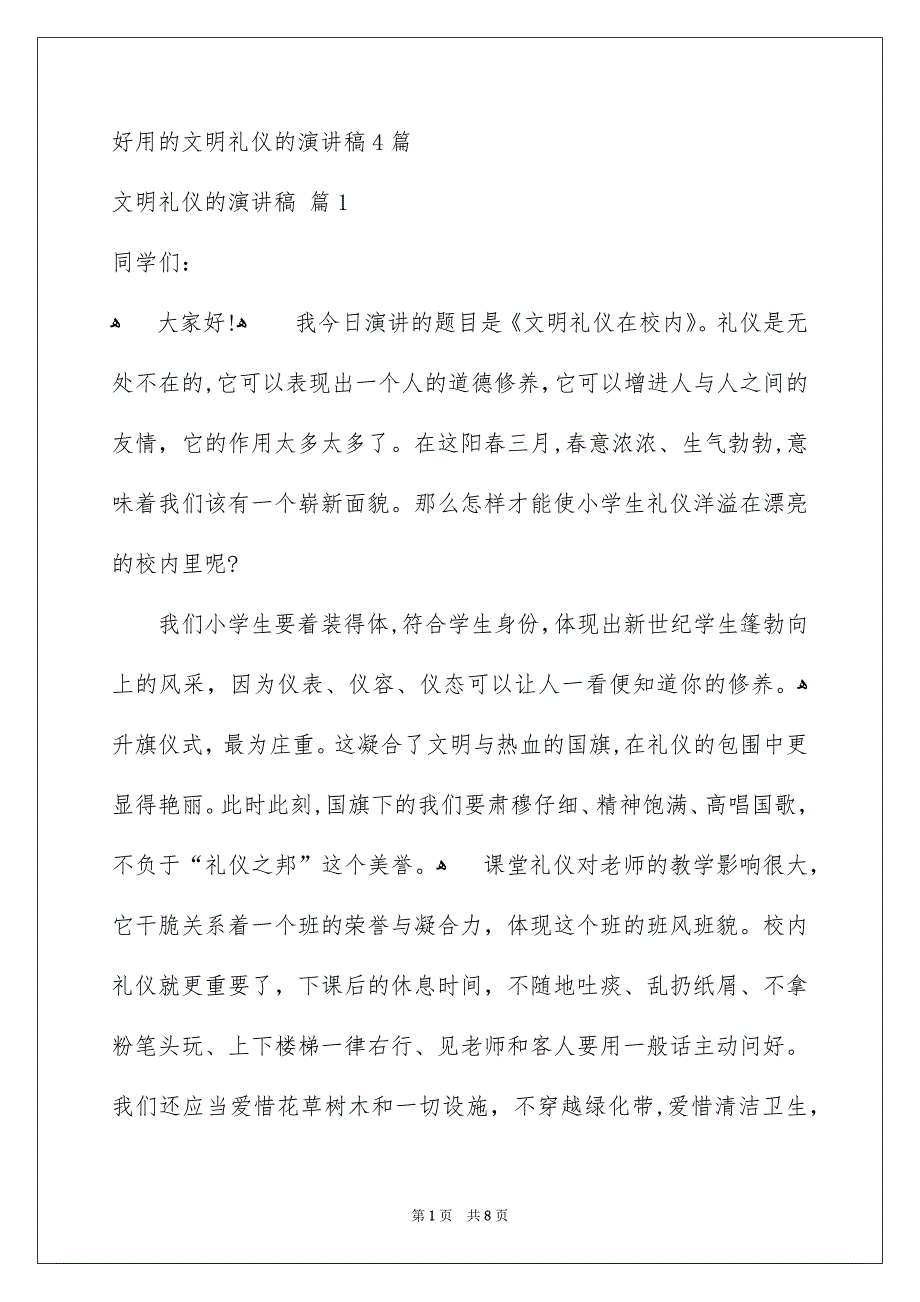 好用的文明礼仪的演讲稿4篇
文明礼仪的演讲稿 篇1
同学们：
ﻫ 大家好!ﻫ 我今日演讲的题目是《文明礼仪在校内》。礼仪是无
处不在的,它可以表现出一个人的道德修养,它可以增进人与人之间的
友情，它的作用太多太多了。在这阳春三月,春意浓浓、生气勃勃,意
味着我们该有一个崭新面貌。那么怎样才能使小学生礼仪洋溢在漂亮
的校内里呢?
我们小学生要着装得体,符合学生身份,体现出新世纪学生篷勃向
上的风采，因为仪表、仪容、仪态可以让人一看便知道你的修养。ﻫ
升旗仪式，最为庄重。这凝合了文明与热血的国旗,在礼仪的包围中更
显得艳丽。此时此刻,国旗下的我们要肃穆仔细、精神饱满、高唱国歌，
不负于“礼仪之邦”这个美誉。ﻫ 课堂礼仪对老师的教学影响很大,
它干脆关系着一个班的荣誉与凝合力，体现这个班的班风班貌。校内
礼仪就更重要了，下课后的休息时间，不随地吐痰、乱扔纸屑、不拿
粉笔头玩、上下楼梯一律右行、见老师和客人要用一般话主动问好。
我们还应当爱惜花草树木和一切设施，不穿越绿化带,爱惜清洁卫生,
第1页 共8页